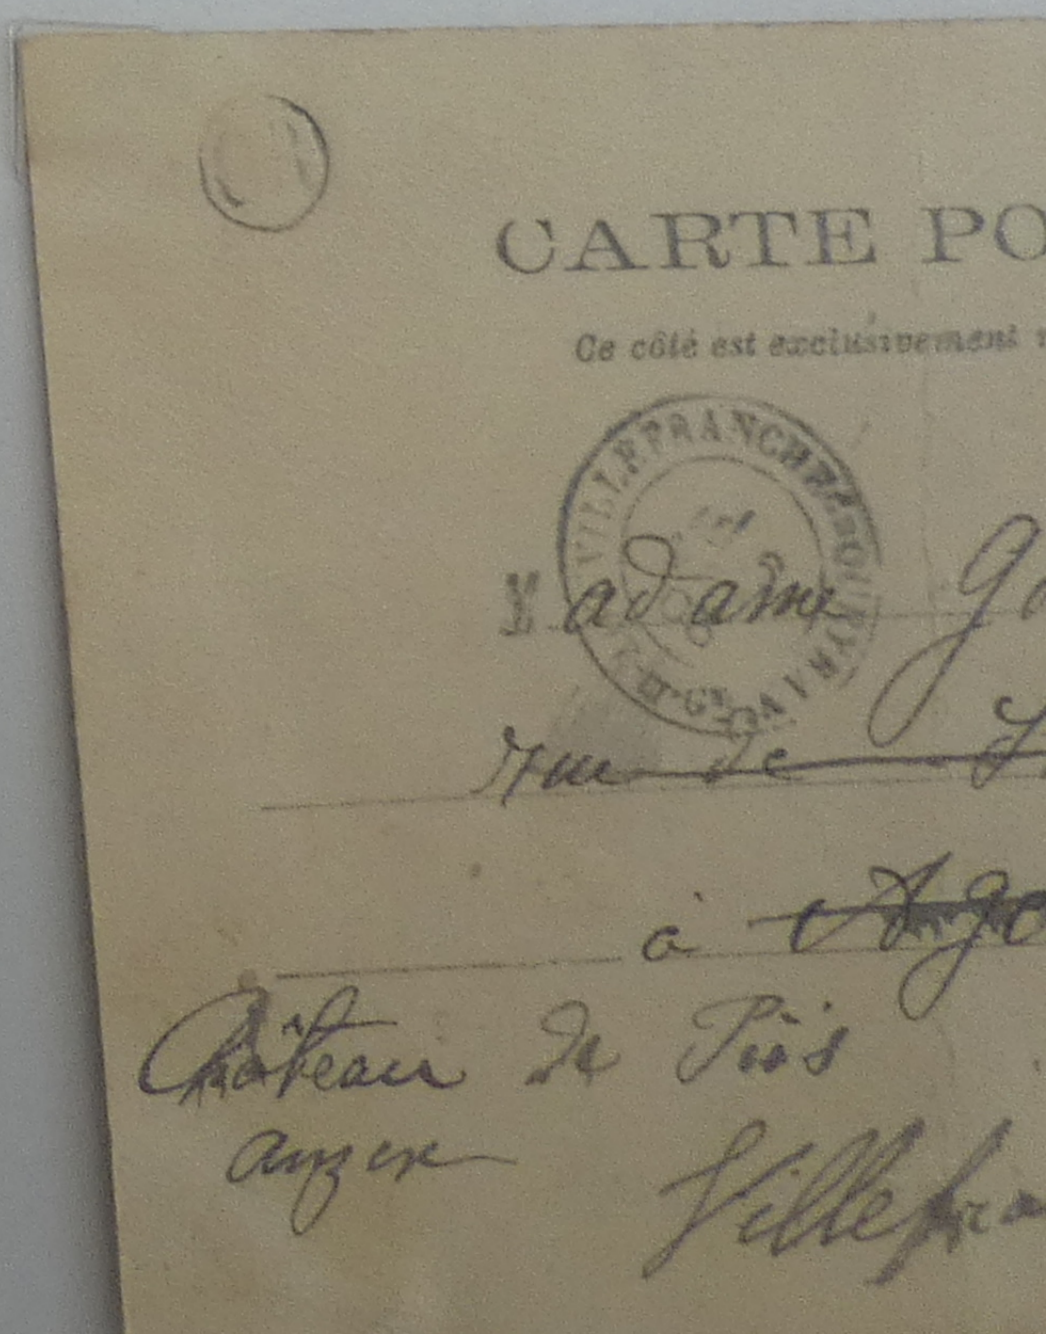 CARTE PO
Ce côté est exclusivement
VILLEFRANCHE
Madame
rue de
à
Château de Piis
Villefra